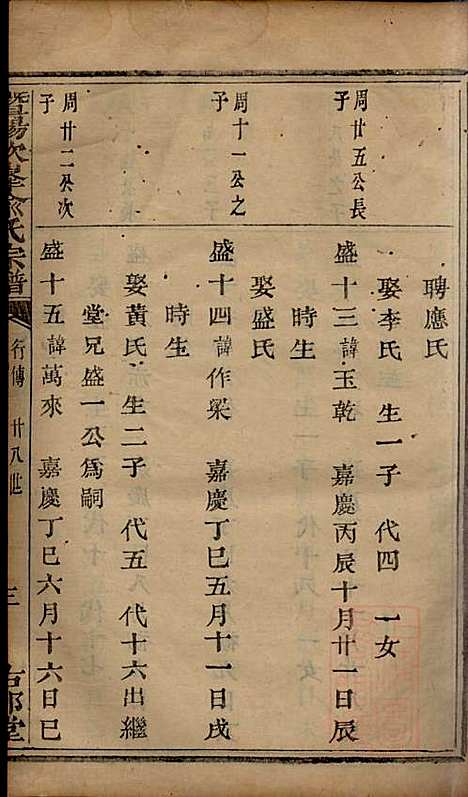 聘應氏
娶李氏 生一子 代四 一女
周廿五公長
子
盛十三諱玉乾 嘉慶丙辰十月廿一日辰
時生
娶盛氏
周十一公之
子
盛十四諱作梁 嘉慶丁巳五月十一日戌
時生
娶黃氏 生二子 代五 代十六出繼
堂兄盛一公為嗣
周廿二公次
子
盛十五諱萬來 嘉慶丁巳六月十六日巳
暨陽次峯俞氏宗譜
行傳 廿八世
三